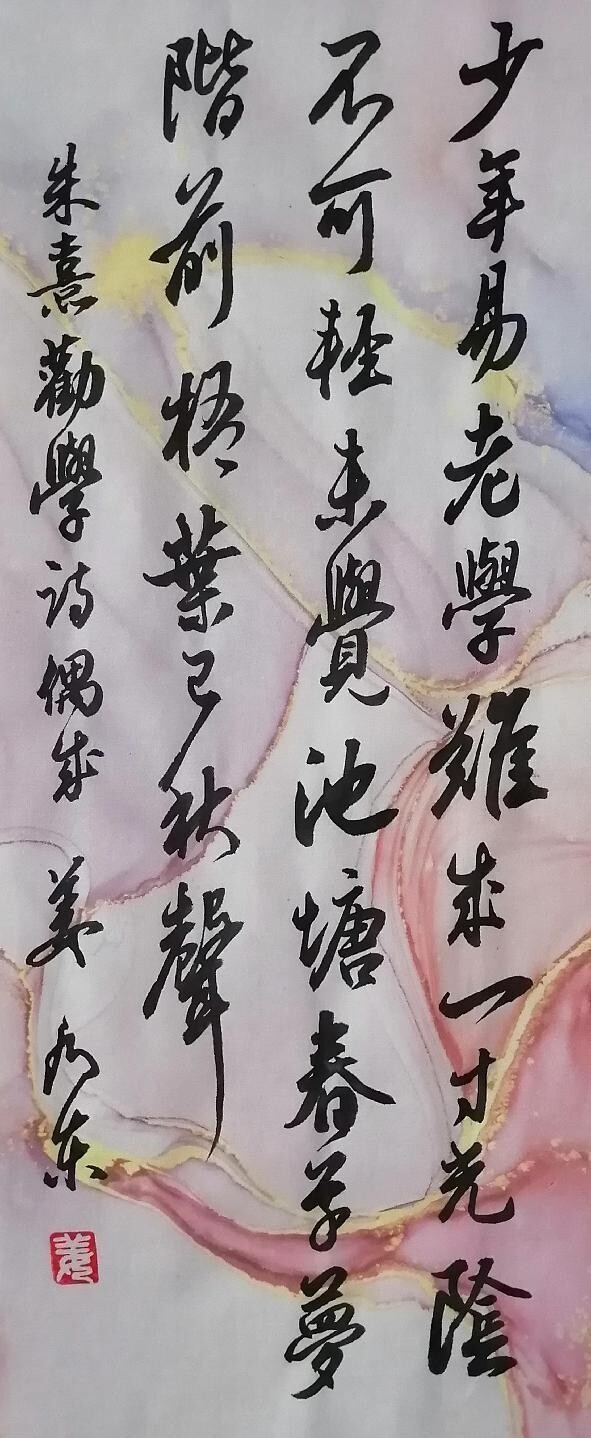 少年易老學難成一寸光陰
不可輕未覺池塘春草夢
階前梧葉已秋聲
朱熹勸學詩偶成 姜永東
姜